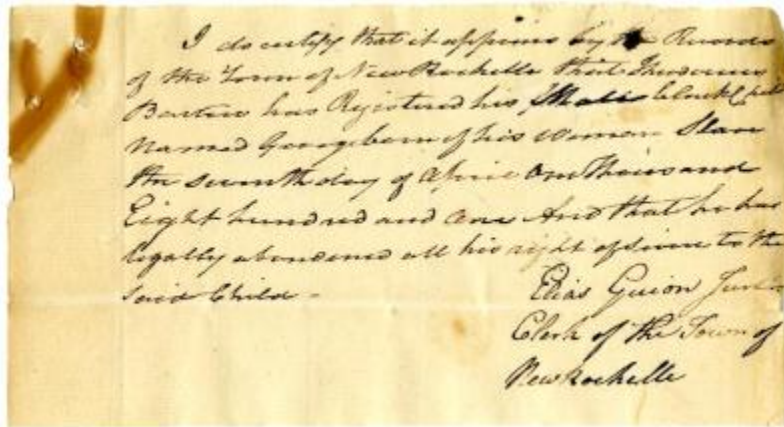 I do certify that it appears by the Records
of the Town of New Rochelle that Theodosius
Bartow has Registered his Male black Child
Named George born of his woman Slave
the seventh day of April One thousand
Eight hundred and One And that he has
legally abandoned all his right of to the
said Child -
Elias Guion Jun
Clerk of the Town of
New Rochelle